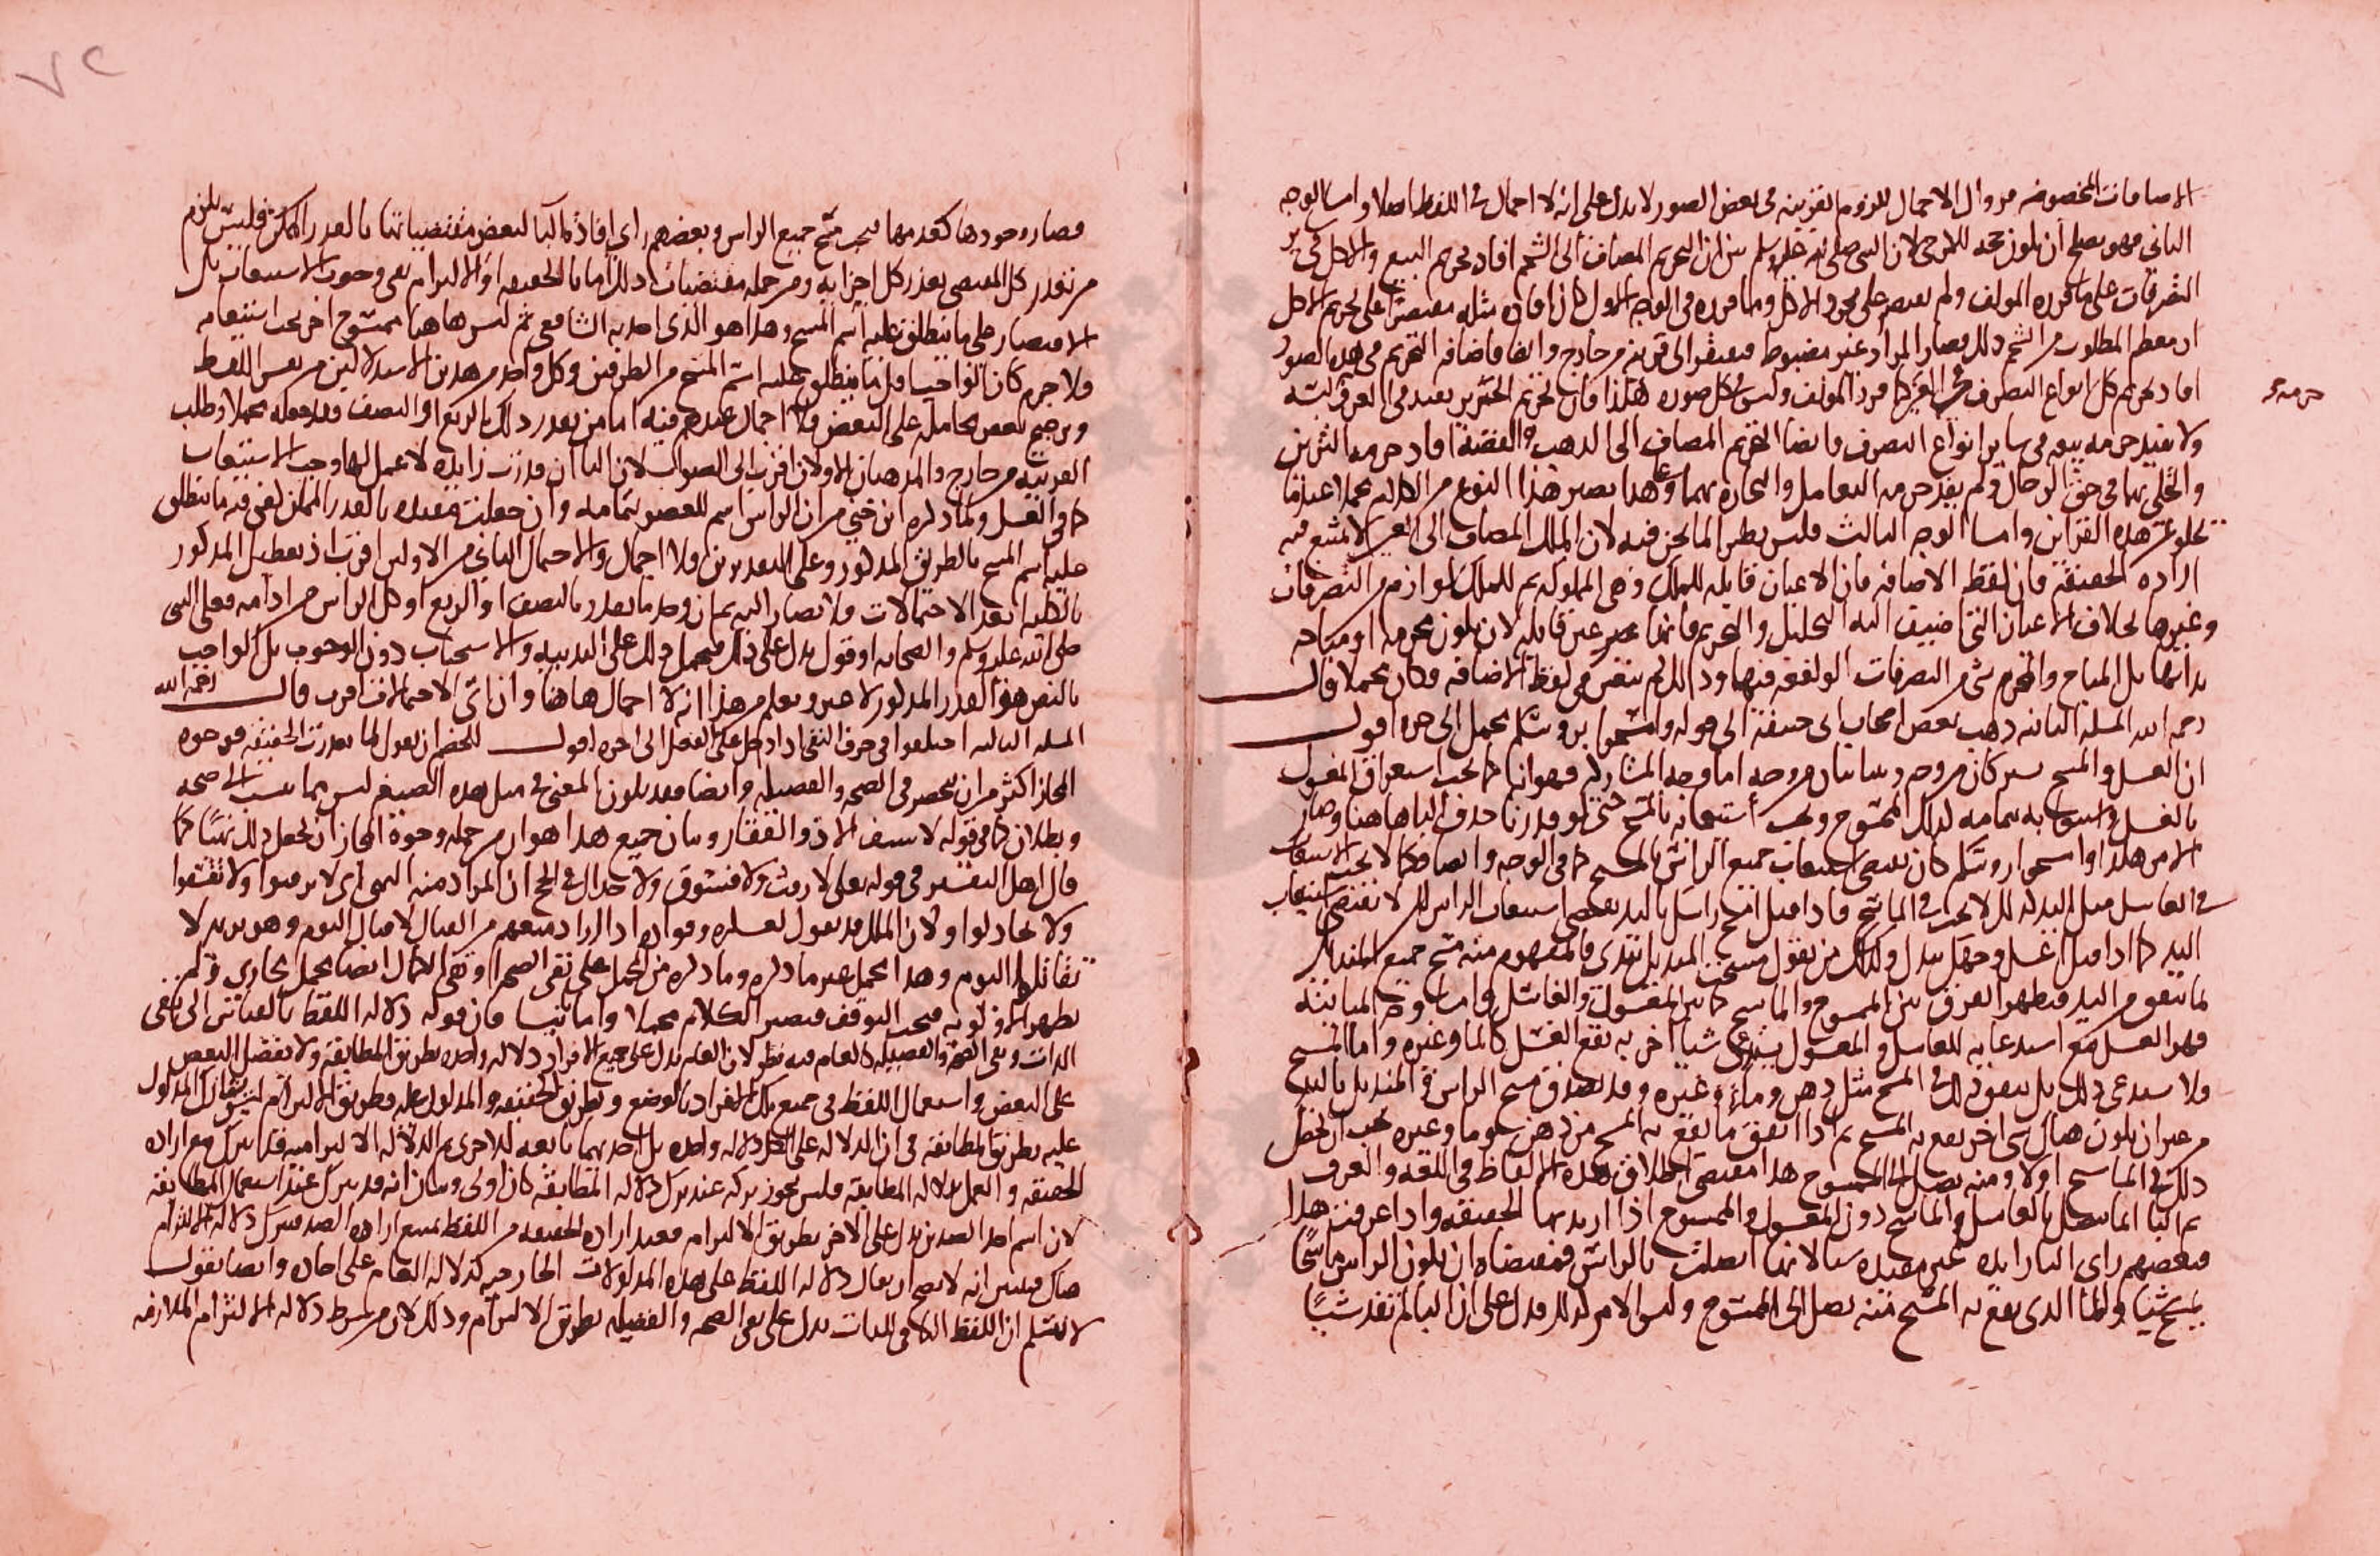 الاضافات المخصوصة من زوال الاجمال للزوم القرينة فى بعض الصور لا يدل على انه لا اجمال فى اللفظ اصلا واما الوجه
الثانى فهو يصلح ان يكون حجة للمرجى لان النبى صلى الله عليه وسلم بين ان التحريم المضاف الى الشحم افاد تحريم البيع والاكل
التصرفات على ما قرره المولف ولم يقتصر على مجرد الاكل وما قرره فى الوجه الاول كان افاده مثله مقتصرا على تحريم الاكل
اذ معظم المطلوب من الشحم ذلك فصار المراد غير مضبوط فيفتقر الى قرينة من خارج وايضا فاضافة التحريم فى هذه الصور
افاد تحريم كل انواع التصرف كما قرر المولف وليس كل صورة هكذا فان تحريم الخنزير يفيد فى العرف
ولا يفيد حرمة بيعه فى ساير انواع التصرف وايضا التحريم المضاف الى الذهب والفضة افاد حرمة التزين
والتحلى بهما فى حق الرجال ولم يفد حرمة التعامل والتجارة بهما وعلى هذا يصير هذا النوع من الكلام مجملا عندما
تخلو عن هذه القراين واما الوجه الثالث فليس نظير لما نحن فيه لان الملك المضاف الى العين لا يمتنع فيه
ارادة الحقيقة فان لفظ الاضافة فان الاعيان قابلة للملك وهى المملوكة ثم للملك لوازم من التصرفات
وغيرها بخلاف الاعيان التى اضيف اليه التحليل والتحريم فانها غير قابلة لان تكون محرمة او مباحة
بذاتها بل المباح والمحرم شى من التصرفات الواقعة فيها وذلك لم يتعين فى لفظ الاضافة فكان مجملا قال
رحمه الله المسلة الثانية ذهب بعض اصحاب ابى حنيفة الى قوله وامسحوا برؤسكم مجمل الى اخره اقول
ان الغسل والمسح يشتركان من وجه ويتباينان من وجه اما وجه المشاركة فهو انه كما يجب استغراق المغسول
بالغسل واستيعابه بتمامه كذلك الممسوح وجب استيعابه بالمسح حتى لو قدرنا حذف الباء هاهنا وصار
الامر هكذا وامسحوا رؤسكم كان يقتضى استيعاب جميع الراس بالمسح كما فى الوجه وايضا فكما لا يجب الاستيعاب
فى الغاسل مثل اليد كذلك لا يجب فى الماسح فاذا قيل امسح راسك باليد يقتضى استيعاب الراس لكن لا يقتضى استيعاب
اليد كما اذا قيل اغسل وجهك بيدك وكذلك من يقول مسحت المنديل بيدى فالمفهوم منه مسح جميع المنديل
لما يتقوم من اليد فيظهر الفرق بين الممسوح والماسح كما بين المغسول والغاسل واما وجه المباينة
فهو الغسل مع استدعائه للغاسل والمغسول يستدعى شيا اخر به يقع الغسل كالماء وغيره واما المسح
ولا يستدعى ذلك بل يتفق ذلك فى المسح مثل دهن وماء وغيره وقد يصدق مسح الراس والمنديل باليد
من غير ان يكون هناك شى اخر يقع به المسح ثم اذا اتفق ما يقع به المسح من دهن او ماء وغيره يجب ان يحصل
ذلك فى الماسح اولا ومنه يصل الى الممسوح هذا مقتضى اطلاق هذه الالفاظ فى اللغة والعرف
ثم الباء انما يتصل بالغاسل والماسح دون المغسول والممسوح اذا اريد بهما الحقيقة واذا عرفت هذا
فبعضهم راى الباء زايدة غير مفيدة شيا لانها اتصلت بالراس فمقتضاه ان يكون الراس ماسحا
يمسح شيا ولما الذى يقع به المسح منه يصل الى الممسوح وليس الامر كذلك فدل على ان الباء لم تفد شيا
فصار وجودها كعدمها فيجب مسح جميع الراس وبعضهم راى افادة الباء لبعض مقتضياتها بالقدر الممكن فليس يلزم
من تعذر كل المقتضى تعذر كل اجزايه ومن جملة مقتضيات ذلك اما بالحقيقة او الالتزام نفى وجوب الاستيعاب بل
الاقتصار على ما ينطلق عليه اسم المسح وهذا هو الذى اخذ به الشافعى ثم ليس هاهنا ممسوح اخر يجب استيعابه
فلا جرم كان الواجب اقل ما ينطلق عليه اسم المسح من الطرفين وكل واحد من هذين الاستدلالين من نفس اللفظ
وترجيح بعض محامله على البعض ولا اجمال عندهم فيه اما من يقدر ذلك بالربع او النصف فقد جعله مجملا وطلب
القرينة من خارج والمذهبان الاولان اقرب الى الصواب لان الباء ان قدرت زايدة لا عمل لها وجب الاستيعاب
كما فى الغسل ولما ذكره ابن جنى من ان الراس اسم للعضو بتمامه وان جعلت مفيدة بالقدر الممكن كفى فيه ما ينطلق
عليه اسم المسح بالطريق المذكور وعلى التقديرين فلا اجمال والاحتمال الثانى من الاولين اقرب اذ تعطيل المذكور
بالكلية ابعد الاحتمالات فلا يصار اليه ثم ان وجد ما يقدر بالنصف او الربع او كل الراس من ادامة فعل النبى
صلى الله عليه وسلم والصحابة او قول يدل على ذلك فيحمل ذلك على الندبية والاستحباب دون الوجوب بل الواجب
بالنص هو القدر المذكور لا غير ويعلم من هذا انه لا اجمال هاهنا وان اى الاحتمالات اقرب قال رحمه الله
المسلة الثالثة اختلفوا فى حرف النفى اذا دخل على الفعل الى اخره اقول للخصم ان يقول لما تعذرت الحقيقة فوجوه
المجاز اكثر من ان ينحصر فى الصحة والفضيلة وايضا فقد يكون المعنى فى مثل هذه الصيغ ليس مما ينسب الى صحة
وبطلان كما فى قوله لا سيف الا ذو الفقار وبيان جميع هذا هو ان من جملة وجوه المجاز ان يجعل ذلك نهيا كما
قال اهل التفسير فى قوله تعالى لا رفث ولا فسوق ولا جدال فى الحج ان المراد منه النهى اى لا ترفثوا ولا تفسقوا
ولا تجادلوا ولان الملك قد يقول لعسكره وقواده اذا اراد منعهم من القتال لا قتال اليوم وهو يريد لا
تقاتلوا اليوم وهذا محمل غير ما ذكره وما ذكره من الحمل على نفى الصحة او نفى الكمال ايضا محمل مجازى فلم
يظهر اولوية فيجب التوقف فيصير الكلام مجملا واما ثانيا فان قوله دلالة اللفظ بالقياس الى نفى
الذات ونفى الصحة والفضيلة كالعام فيه نظر لان العام يدل على جميع الافراد دلالة واحدة بطريق المطابقة ولا يفضل البعض
على البعض واستعمال اللفظ فى جميع تلك الافراد بالوضع وبطريق الحقيقة والمدلول عليه بطريق الالتزام ليس يشارك المدلول
عليه بطريق المطابقة فى ان الدلالة على الكل دلالة واحدة بل احديهما تابعة للاخرى ثم الدلالة الالتزامية قد تترك مع ارادة
الحقيقة والعمل بدلالة المطابقة فليس يجوز تركه عند ترك دلالة المطابقة كان اولى وبيان انه قد يترك عند استعمال المطابقة
لان اسم احد الضدين يدل على الاخر بطريق الالتزام فعند ارادة الحقيقة من اللفظ يمتنع ارادة الضد فيترك دلالة الالتزام
هناك فتبين انه لا يصح ان يقال دلالة اللفظ على هذه المدلولات الخارجية كدلالة العام على احاده وايضا نقول
لا نسلم ان اللفظ النافى للذات يدل على نفى الصحة والفضيلة بطريق الالتزام وذلك لان من شرط دلالة الالتزام الملازمة